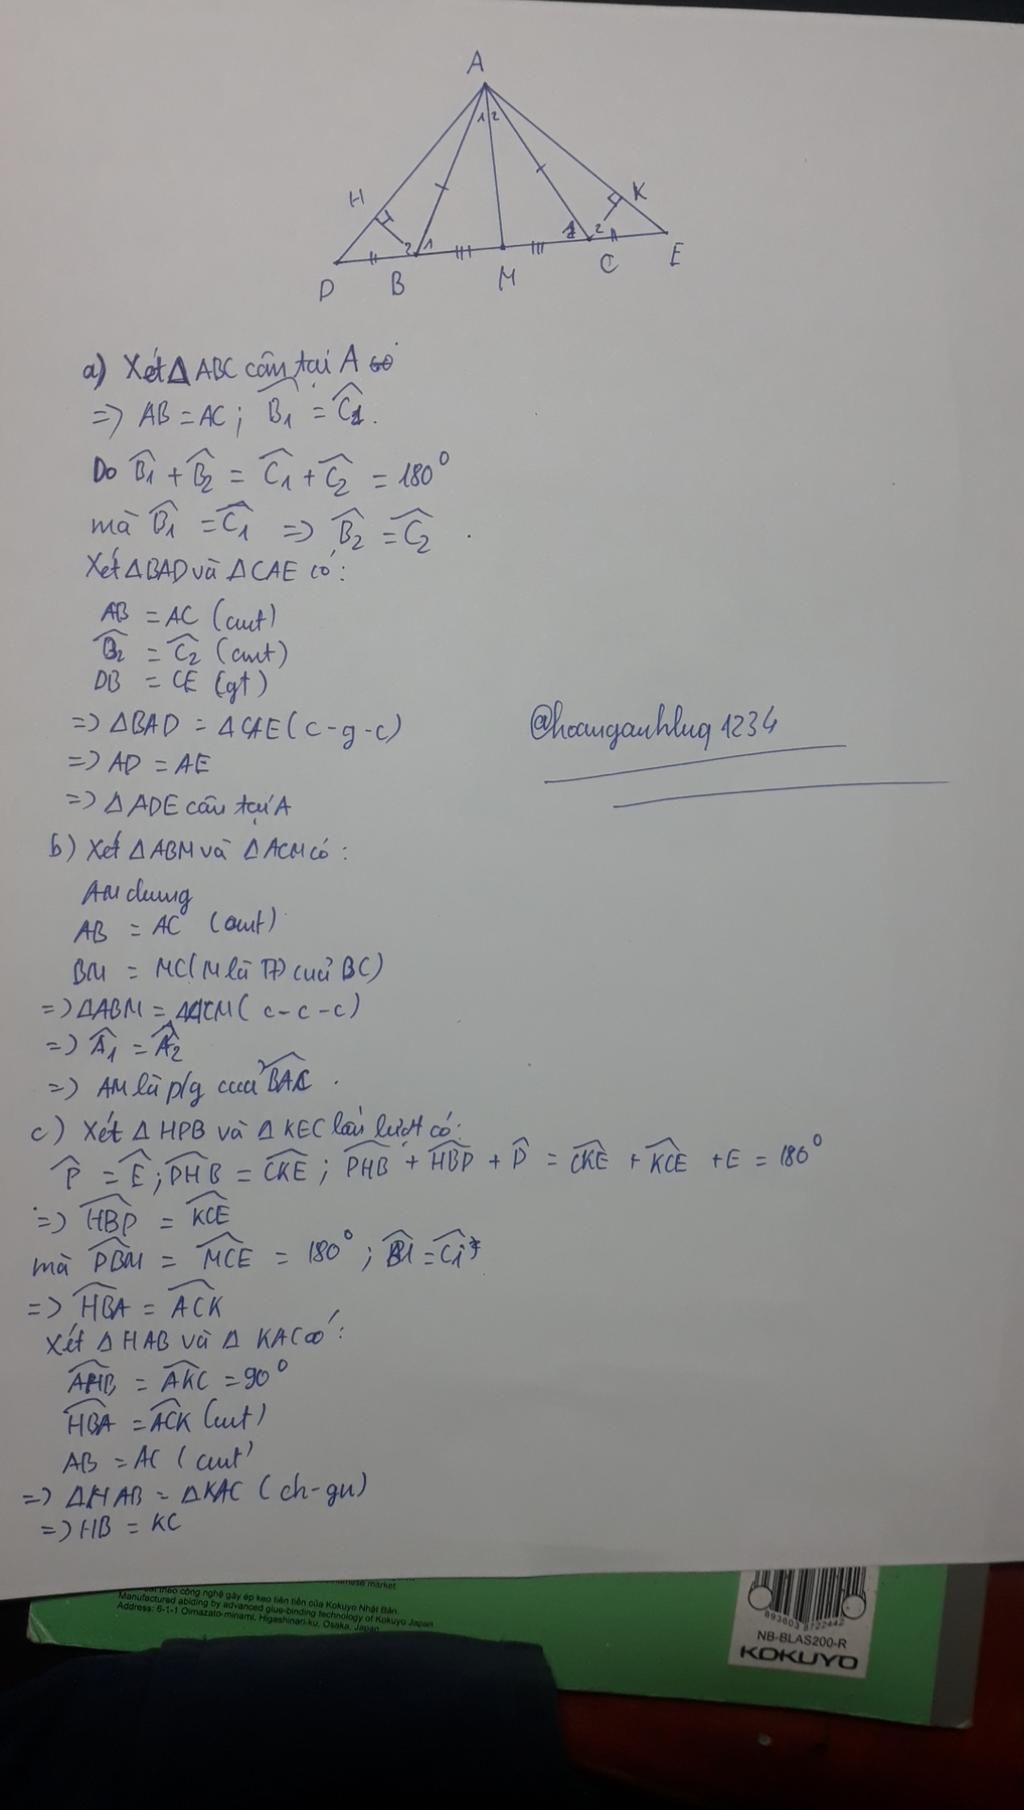 A
1 2
H
K
2 1
1 2
D
B
M
C
E
a) Xét Δ ABC cân tại A có
=> AB = AC ; B̂1 = Ĉ1.
Do B̂1 + B̂2 = Ĉ1 + Ĉ2 = 180°
mà B̂1 = Ĉ1 => B̂2 = Ĉ2.
Xét Δ BAD và Δ CAE có:
AB = AC (cmt)
B̂2 = Ĉ2 (cmt)
DB = CE (gt)
=> Δ BAD = Δ CAE (c-g-c)
@hoanganhluq1234
=> AD = AE
=> Δ ADE cân tại A
b) Xét Δ ABM và Δ ACM có:
AM chung
AB = AC (cmt)
BM = MC (M là TĐ của BC)
=> Δ ABM = Δ ACM (c-c-c)
=> Â1 = Â2
=> AM là p/g của BAC.
c) Xét Δ HDB và Δ KEC lần lượt có:
D̂ = Ê ; DHB = CKE ; DHB + HBD + D̂ = CKE + KCE + E = 180°
=> HBD = KCE
mà DBM = MCE = 180° ; B̂1 = Ĉ1
=> HBA = ACK
Xét Δ HAB và Δ KAC có:
AHB = AKC = 90°
HBA = ACK (cmt)
AB = AC (cmt)
=> Δ HAB = Δ KAC (ch-gn)
=> HB = KC
theo công nghệ gáy ép keo tiên tiến của Kokuyo Nhật Bản.
Manufactured abiding by advanced glue-binding technology of Kokuyo Japan
Address: 6-1-1 Oimazato-minami, Higashinari-ku, Osaka, Japan
893603 8722442
NB-BLAS200-R
KOKUYO